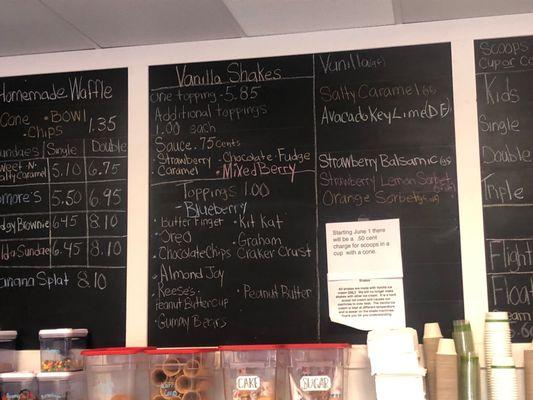 Homemade Waffle
Cone • Bowl
• Chips 1.35
Sundaes Single Double
Sweet N
Salty Caramel 5.10 6.75
Smore's 5.50 6.95
Fudgy Brownie 6.45 8.10
Sundae 6.45 8.10
Banana Splat 8.10
Vanilla Shakes
One topping - 5.85
Additional toppings
1.00 each
Sauce .75 cents
• Strawberry • Chocolate • Fudge
• Caramel • Mixed Berry
Toppings 1.00
- Blueberry
• Butter Finger • Kit Kat
• Oreo • Graham
• Chocolate Chips Craker Crust
• Almond Joy
• Reese's
Peanut Buttercup • Peanut Butter
• Gummy Bears
Vanilla (GF)
Salty Caramel GS
Avacado Key Lime DF
Strawberry Balsamic GS
Strawberry Lemon Sorbet
Orange Sorbet
Starting June 1 there
will be a .50 cent
charge for scoops in a
cup with a cone.
Shakes
All shakes are made with Vanilla ice
cream ONLY. We will no longer make
shakes with other ice cream.
Thank you for understanding
Scoops
Cup or Co
Kids
Single
Double
Triple
Flight
Float
CAKE
SUGAR